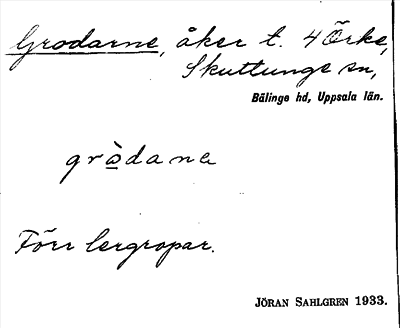 Grodarne, åker t. 4 Örke,
Skuttunge sn,
Bälinge hd, Uppsala län.
gròdana
Förr lergropar.
JÖRAN SAHLGREN 1933.